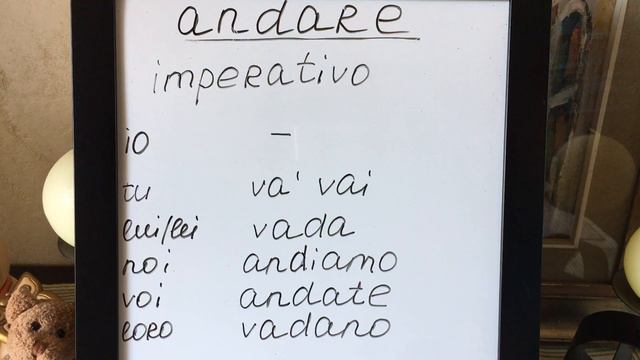 andare
imperativo
io —
tu va' vai
lui/lei vada
noi andiamo
voi andate
loro vadano